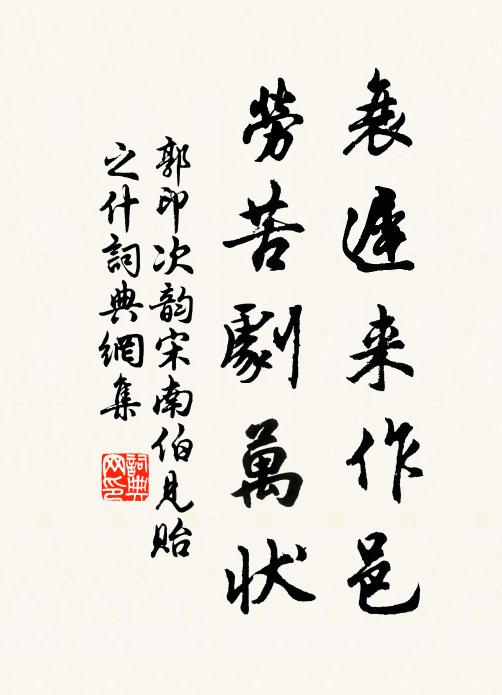 衰遲来作邑
勞苦劇萬狀
郭印次韵宋南伯見貽
之什詞典網集
詞典網印